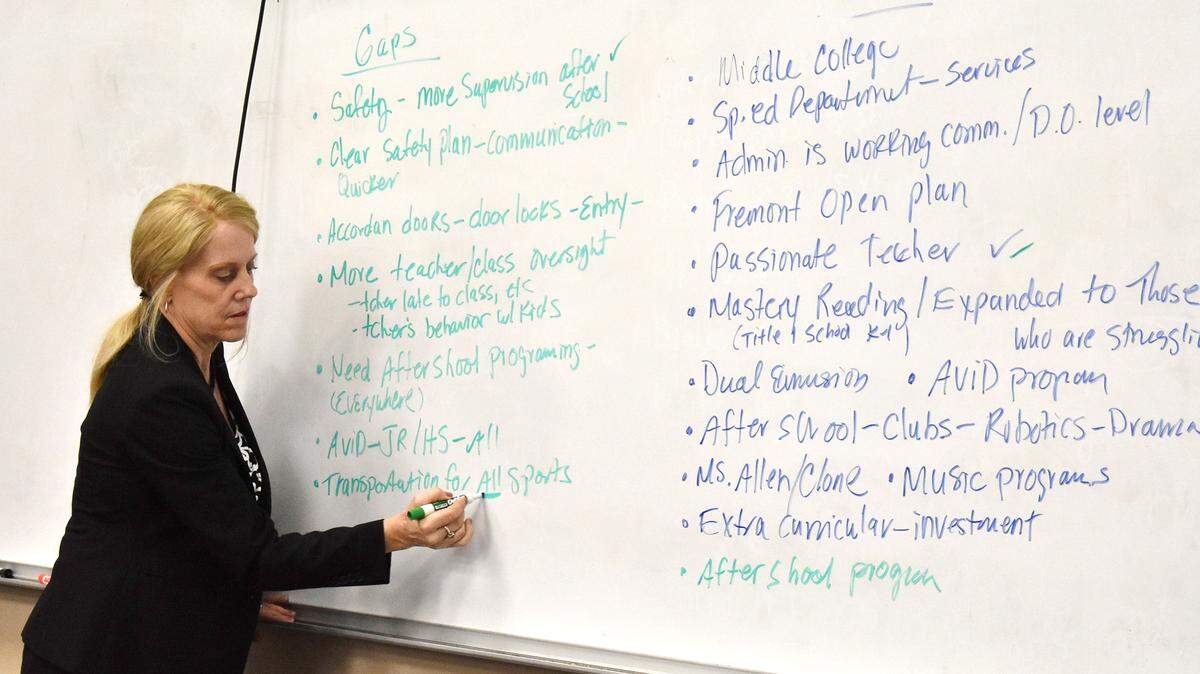 Gaps
• Safety - more Supervision after ✓
School
• Clear Safety plan - communication -
Quicker
• Accordan doors - door locks - Entry -
• More teacher/class oversight
- tcher late to class, etc
- tcher's behavior w/ Kids
• Need Aftershool programing -
(Everywhere)
• AVID - JR/HS - All
• Transportation for All Sports
• Middle College
• Sp. ed Department - Services
• Admin. is working comm. / D.O. level
• Fremont Open plan
• Passionate Teacher ✓
• Mastery Reading / Expanded to Those
(Title 1 School
who are struggli
• Dual • AVID program
• After school - Clubs - Robotics - Drama
• Ms. Allen/Clone • Music programs
• Extra curricular - investment
• Aftershool program